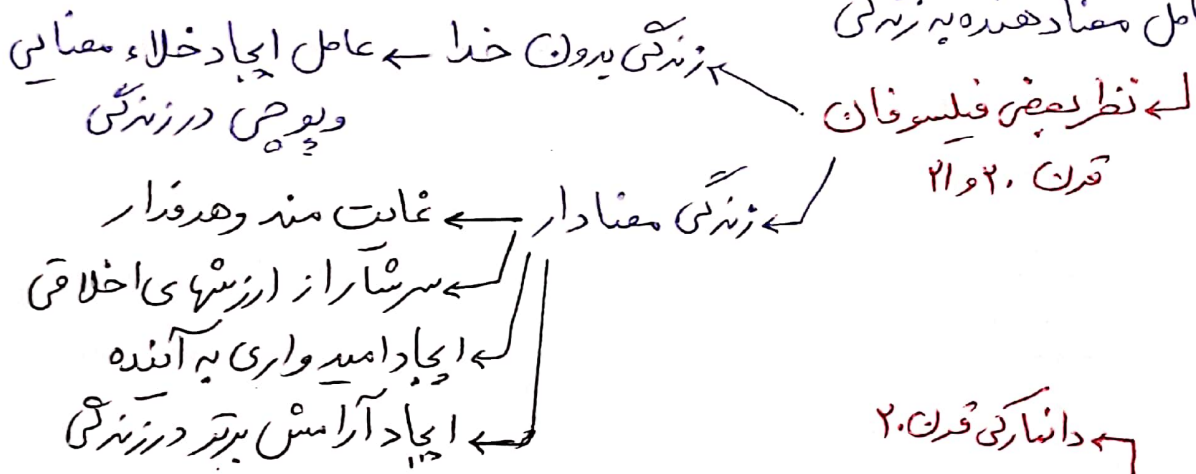 عامل معنا دهنده به زندگی
نظر بعضی فیلسوفان
قرن ۲۰ و ۲۱
زندگی بدون خدا ← عامل ایجاد خلاء معنایی
و پوچی در زندگی
زندگی معنادار ← غایت مند و هدفدار
سرشار از ارزشهای اخلاقی
ایجاد امیدواری به آینده
ایجاد آرامش برتر در زندگی
دانمارکی قرن ۲۰